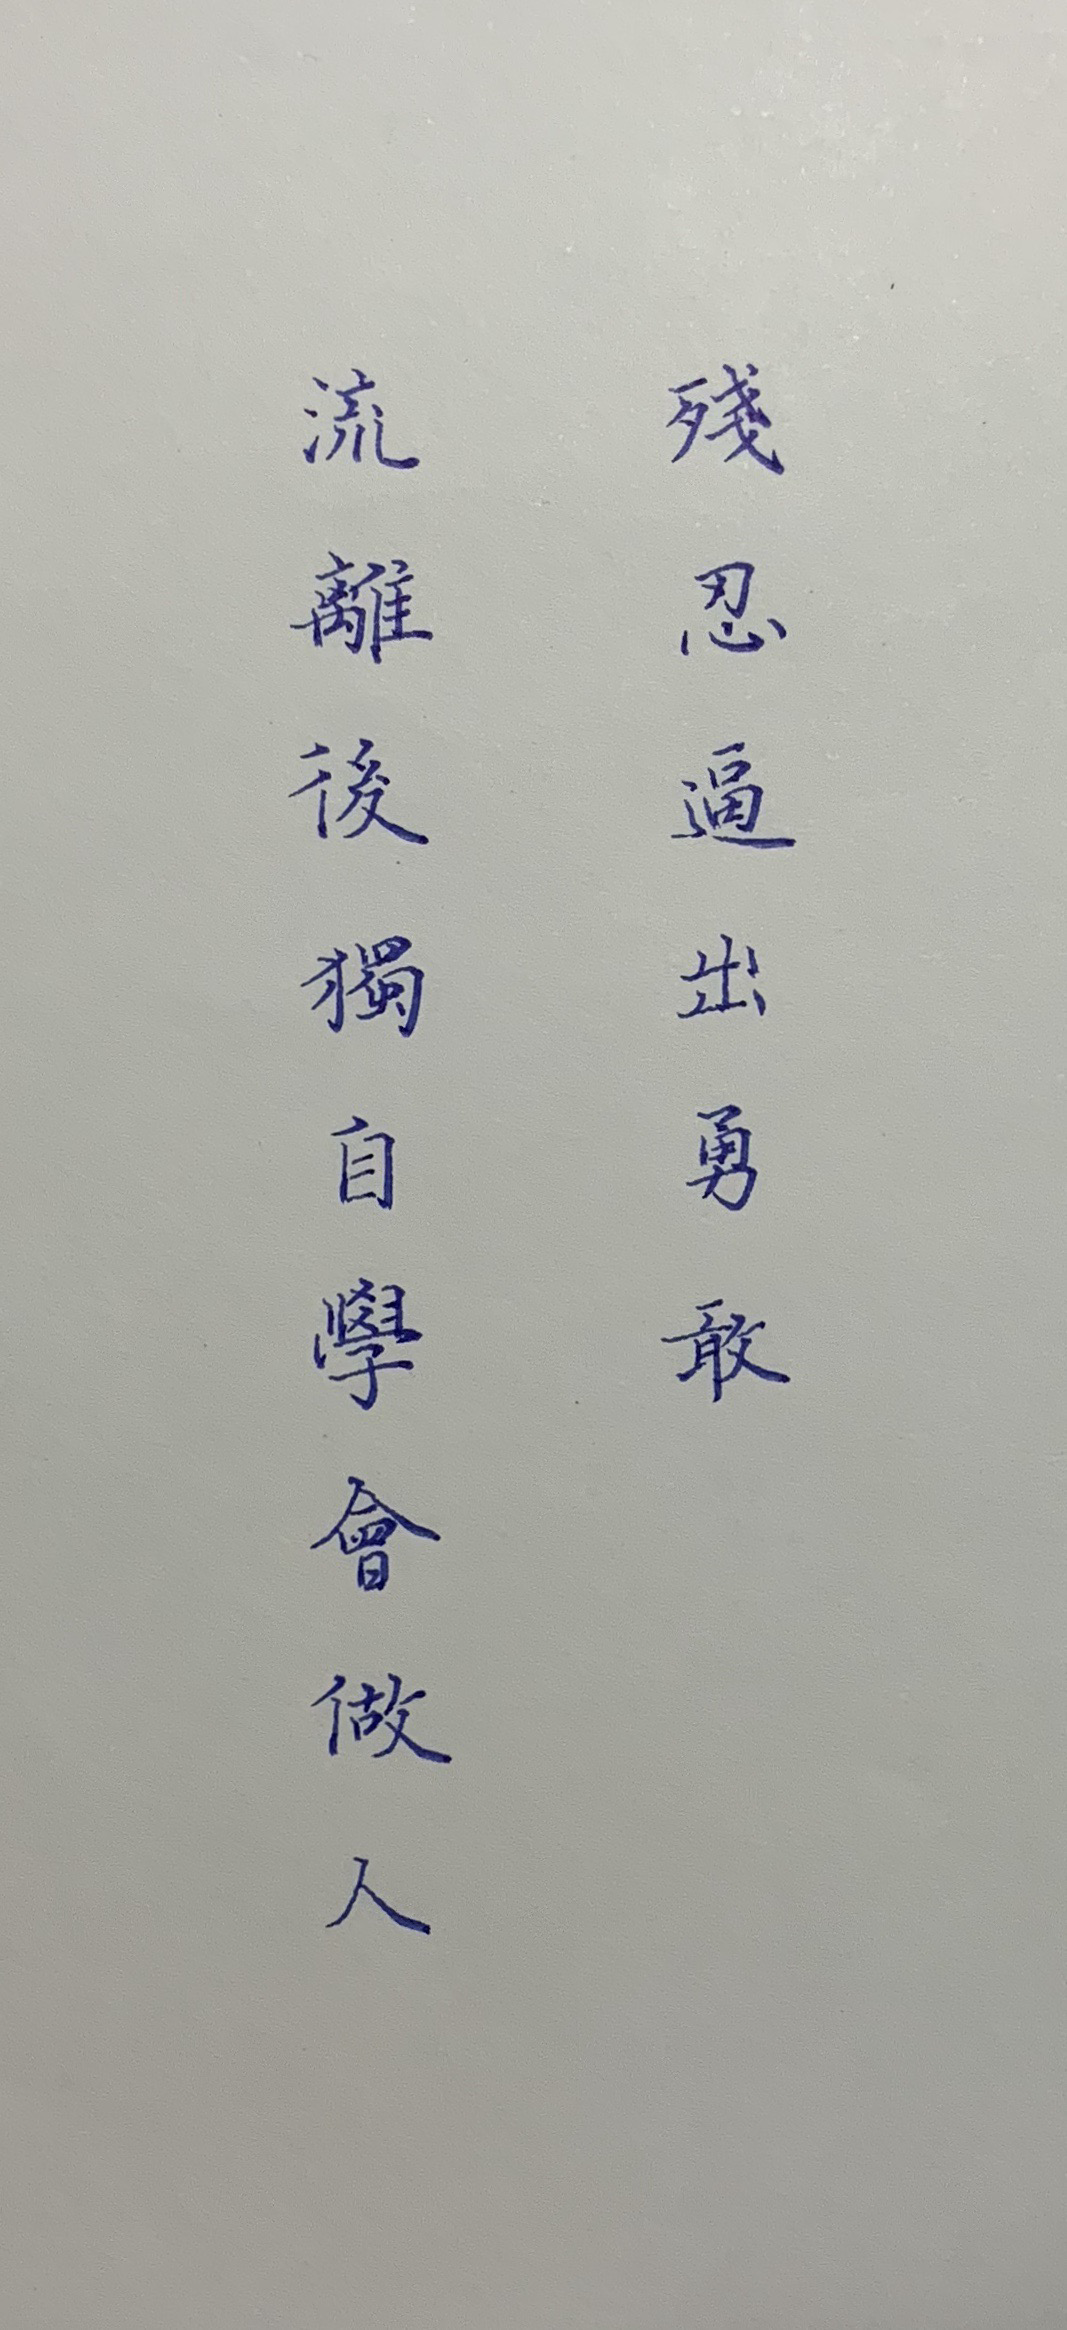 殘忍逼出勇敢
流離後獨自學會做人